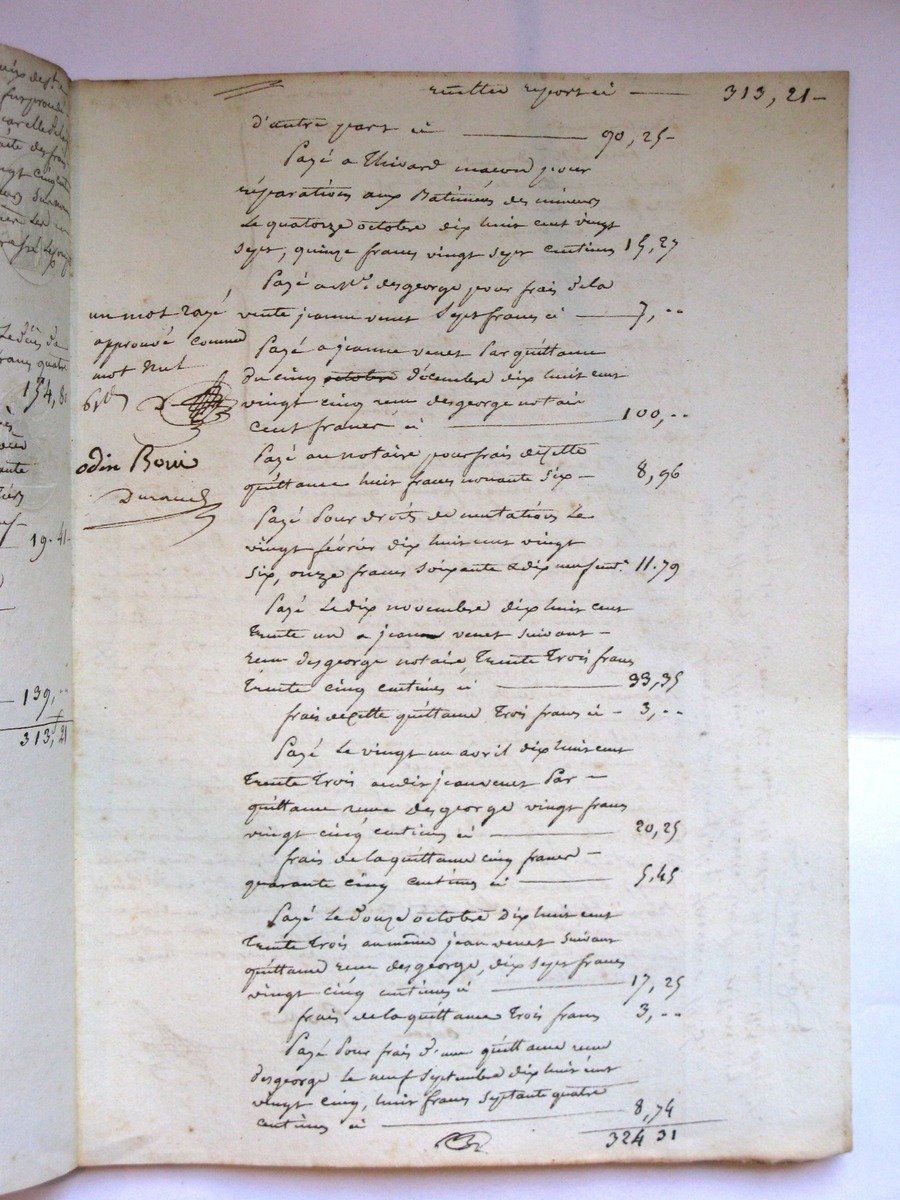 recettes report ci — 313, 21 -
d'autre part ci — 90, 25 -
Payé a Thivard macon pour
réparations aux Batiments des mineurs
Le quatorze octobre dix huit cent vingt
Sept, quinze francs vingt sept centimes 15, 27
Payé a Mr. desgeorge pour frais de la
vente jeanne venet Sept francs ci — 7, ..
Payé a jeanne venet Par quittance
du cinq octobre décembre dix huit cent
vingt cinq reçue desgeorge notaire
cent francs ci — 100, ..
Payé au notaire pour frais de cette
quittance huit francs nonante six - 8, 96
Payé Pour droits de mutations Le
vingt février dix huit cent vingt
Six, onze francs Soixante & dix neuf cent. 11.79
Payé Le dix novembre dix huit cent
trente un a jean venet suivant -
reçue desgeorge notaire, trente trois francs
trente cinq centimes ci — 33, 35
frais de cette quittance trois francs ci - 3, ..
Payé Le vingt un avril dix huit cent
trente trois audit jean venet Par -
quittance reçue desgeorge vingt francs
vingt cinq centimes ci — 20, 25
frais de la quittance cinq francs -
quarante cinq centimes ci — 5, 45
Payé Le douze octobre dix huit cent
trente trois au même jean venet suivant
quittance reçue desgeorge, dix Sept francs
vingt cinq centimes ci — 17, 25
frais de la quittance trois francs 3, ..
Payé Pour frais d'une quittance reçue
desgeorge le neuf Septembre dix huit cent
vingt cinq, huit francs septante quatre
centimes ci — 8, 74
324 31
un mot rayé
approuvé comme
mot nul
odin Boui
Durand
154, 8
19 . 41 -
139, ..
313, 21